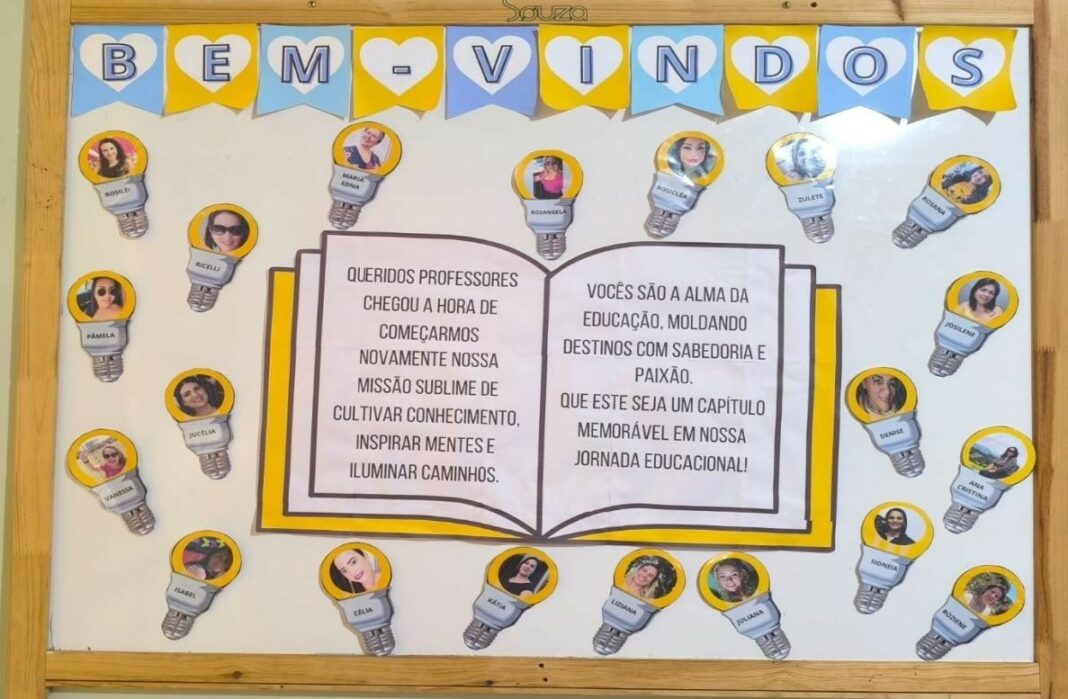 Souza
BEM-VINDOS
ROSILEI
MARIA
EDNA
ROSANGELA
ROSICLÉA
ZULETE
ROSANA
RICELLI
PÂMELA
JOSILENE
JUCÉLIA
DENISE
VANESSA
ANA
CRISTINA
QUERIDOS PROFESSORES
CHEGOU A HORA DE
COMEÇARMOS
NOVAMENTE NOSSA
MISSÃO SUBLIME DE
CULTIVAR CONHECIMENTO,
INSPIRAR MENTES E
ILUMINAR CAMINHOS.
VOCÊS SÃO A ALMA DA
EDUCAÇÃO, MOLDANDO
DESTINOS COM SABEDORIA E
PAIXÃO.
QUE ESTE SEJA UM CAPÍTULO
MEMORÁVEL EM NOSSA
JORNADA EDUCACIONAL!
SIDNEIA
ISABEL
CÉLIA
KÁTIA
LIZIANA
JULIANA
ROZIENE